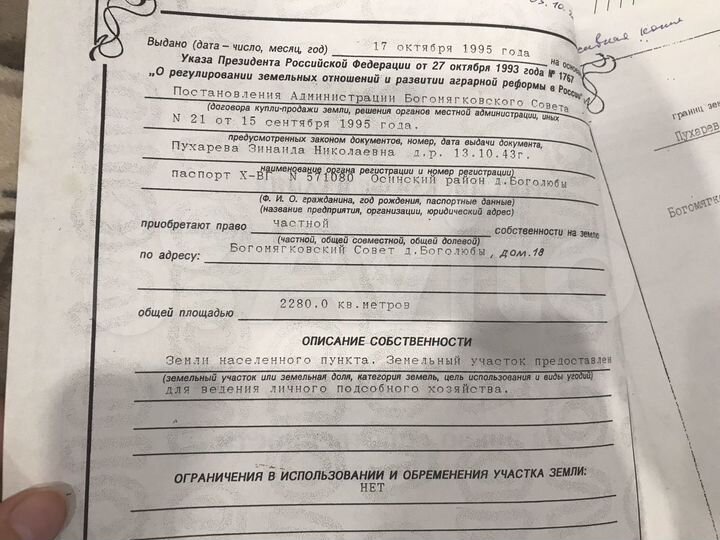 03.10.
Выдано (дата – число, месяц, год) 17 октября 1995 года на основании
Указа Президента Российской Федерации от 27 октября 1993 года № 1767
„О регулировании земельных отношений и развитии аграрной реформы в России"
Постановления Администрации Богомягковского Совета
(договора купли-продажи земли, решения органов местной администрации, иных
N 21 от 15 сентября 1995 года.
предусмотренных законом документов, номер, дата выдачи документа,
Пухарева Зинаида Николаевна д.р. 13.10.43г.
наименование органа регистрации и номер регистрации)
паспорт X-ВГ N 571080 Осинский район д.Боголюбы
(Ф. И. О. гражданина, год рождения, паспортные данные)
(название предприятия, организации, юридический адрес)
приобретают право частной собственности на землю
(частной, общей совместной, общей долевой)
по адресу: Богомягковский Совет д.Боголюбы, дом.18
общей площадью 2280.0 кв.метров
ОПИСАНИЕ СОБСТВЕННОСТИ
Земли населенного пункта. Земельный участок предоставлен
(земельный участок или земельная доля, категория земель, цель использования и виды угодий)
для ведения личного подсобного хозяйства.
ОГРАНИЧЕНИЯ В ИСПОЛЬЗОВАНИИ И ОБРЕМЕНЕНИЯ УЧАСТКА ЗЕМЛИ:
НЕТ
копия
границ зем
Пухарев
Богомягк
Avito